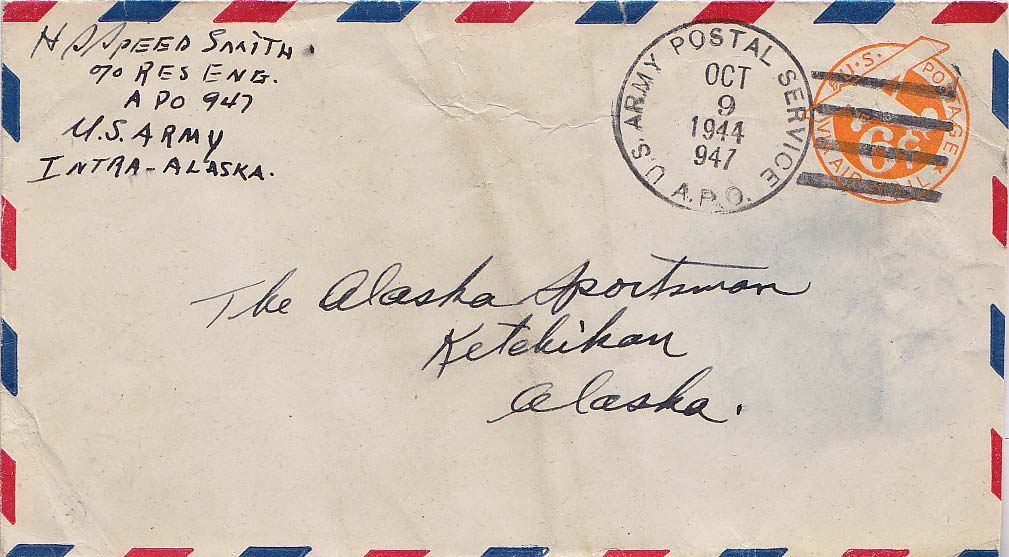 H S SPEED SMITH.
% RES ENG.
APO 947
U.S. ARMY
INTRA-ALASKA.
U.S. ARMY POSTAL SERVICE
OCT
9
1944
947
A.P.O.
U.S. POSTAGE
6¢
VIA AIR MAIL
The Alaska Sportsman
Ketchikan
Alaska.